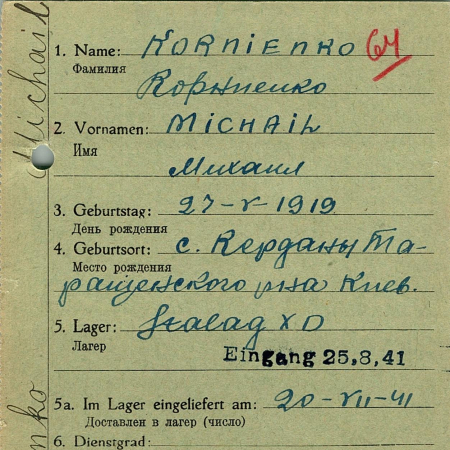 Michail
1. Name: KORNIENKO 64
Фамилия
Корниенко
2. Vornamen: MICHAIL
Имя
Михаил
3. Geburtstag: 27-V-1919
День рождения
4. Geburtsort: с. Керданы Та-
Место рождения
ращенского р-на Киев.
5. Lager: Stalag X D
Лагер
Eingang 25,8,41
5a. Im Lager eingeliefert am: 20-VII-41
Доставлен в лагер (число)
6. Dienstgrad:
nko